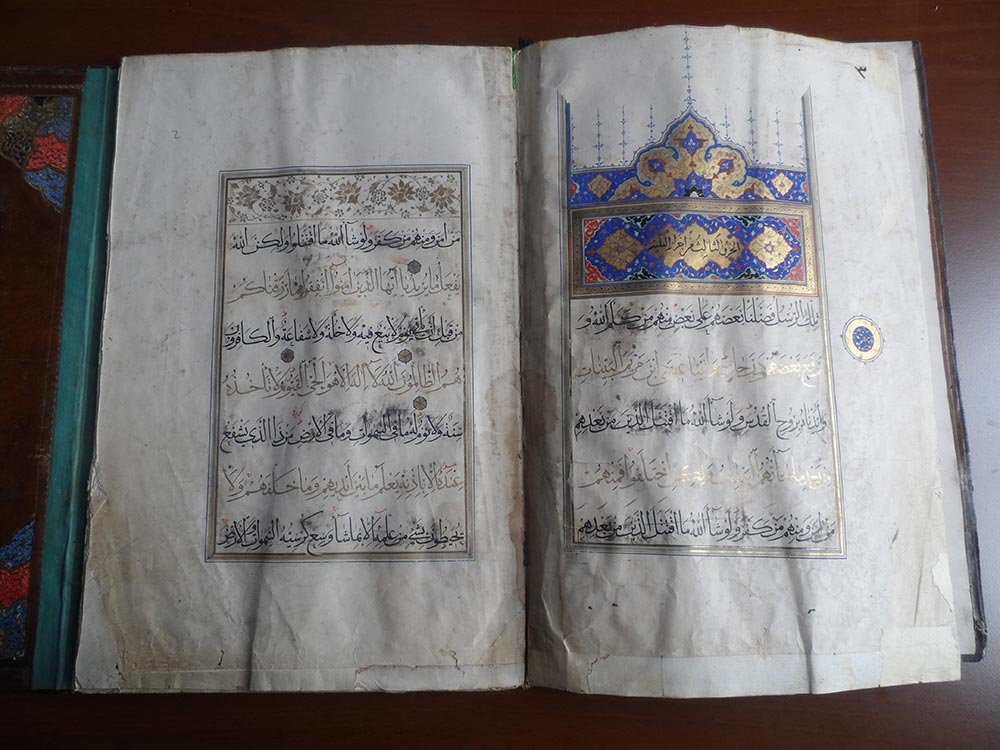 ٣
تلك الرسل فضلنا بعضهم على بعض منهم من كلم الله و
رفع بعضهم درجات واتينا عيسى ابن مريم البينات
وايدناه بروح القدس ولو شاء الله ما اقتتل الذين من بعدهم
من بعد ما جاءتهم البينات ولكن اختلفوا فمنهم
ومنهم من كفر ولو شاء الله ما اقتتل الذين من بعدهم
2
من امن ومنهم من كفر ولو شاء الله ما اقتتلوا ولكن الله
يفعل ما يريد يا ايها الذين امنوا انفقوا مما رزقناكم
من قبل ان يأتي يوم لا بيع فيه ولا خلة ولا شفاعة والكافرون
هم الظالمون الله لا اله الا هو الحي القيوم لا تأخذه
سنة ولا نوم له ما في السموات وما في الارض من ذا الذي يشفع
عنده الا باذنه يعلم ما بين ايديهم وما خلفهم ولا
يحيطون بشيء من علمه الا بما شاء وسع كرسيه السموات والارض